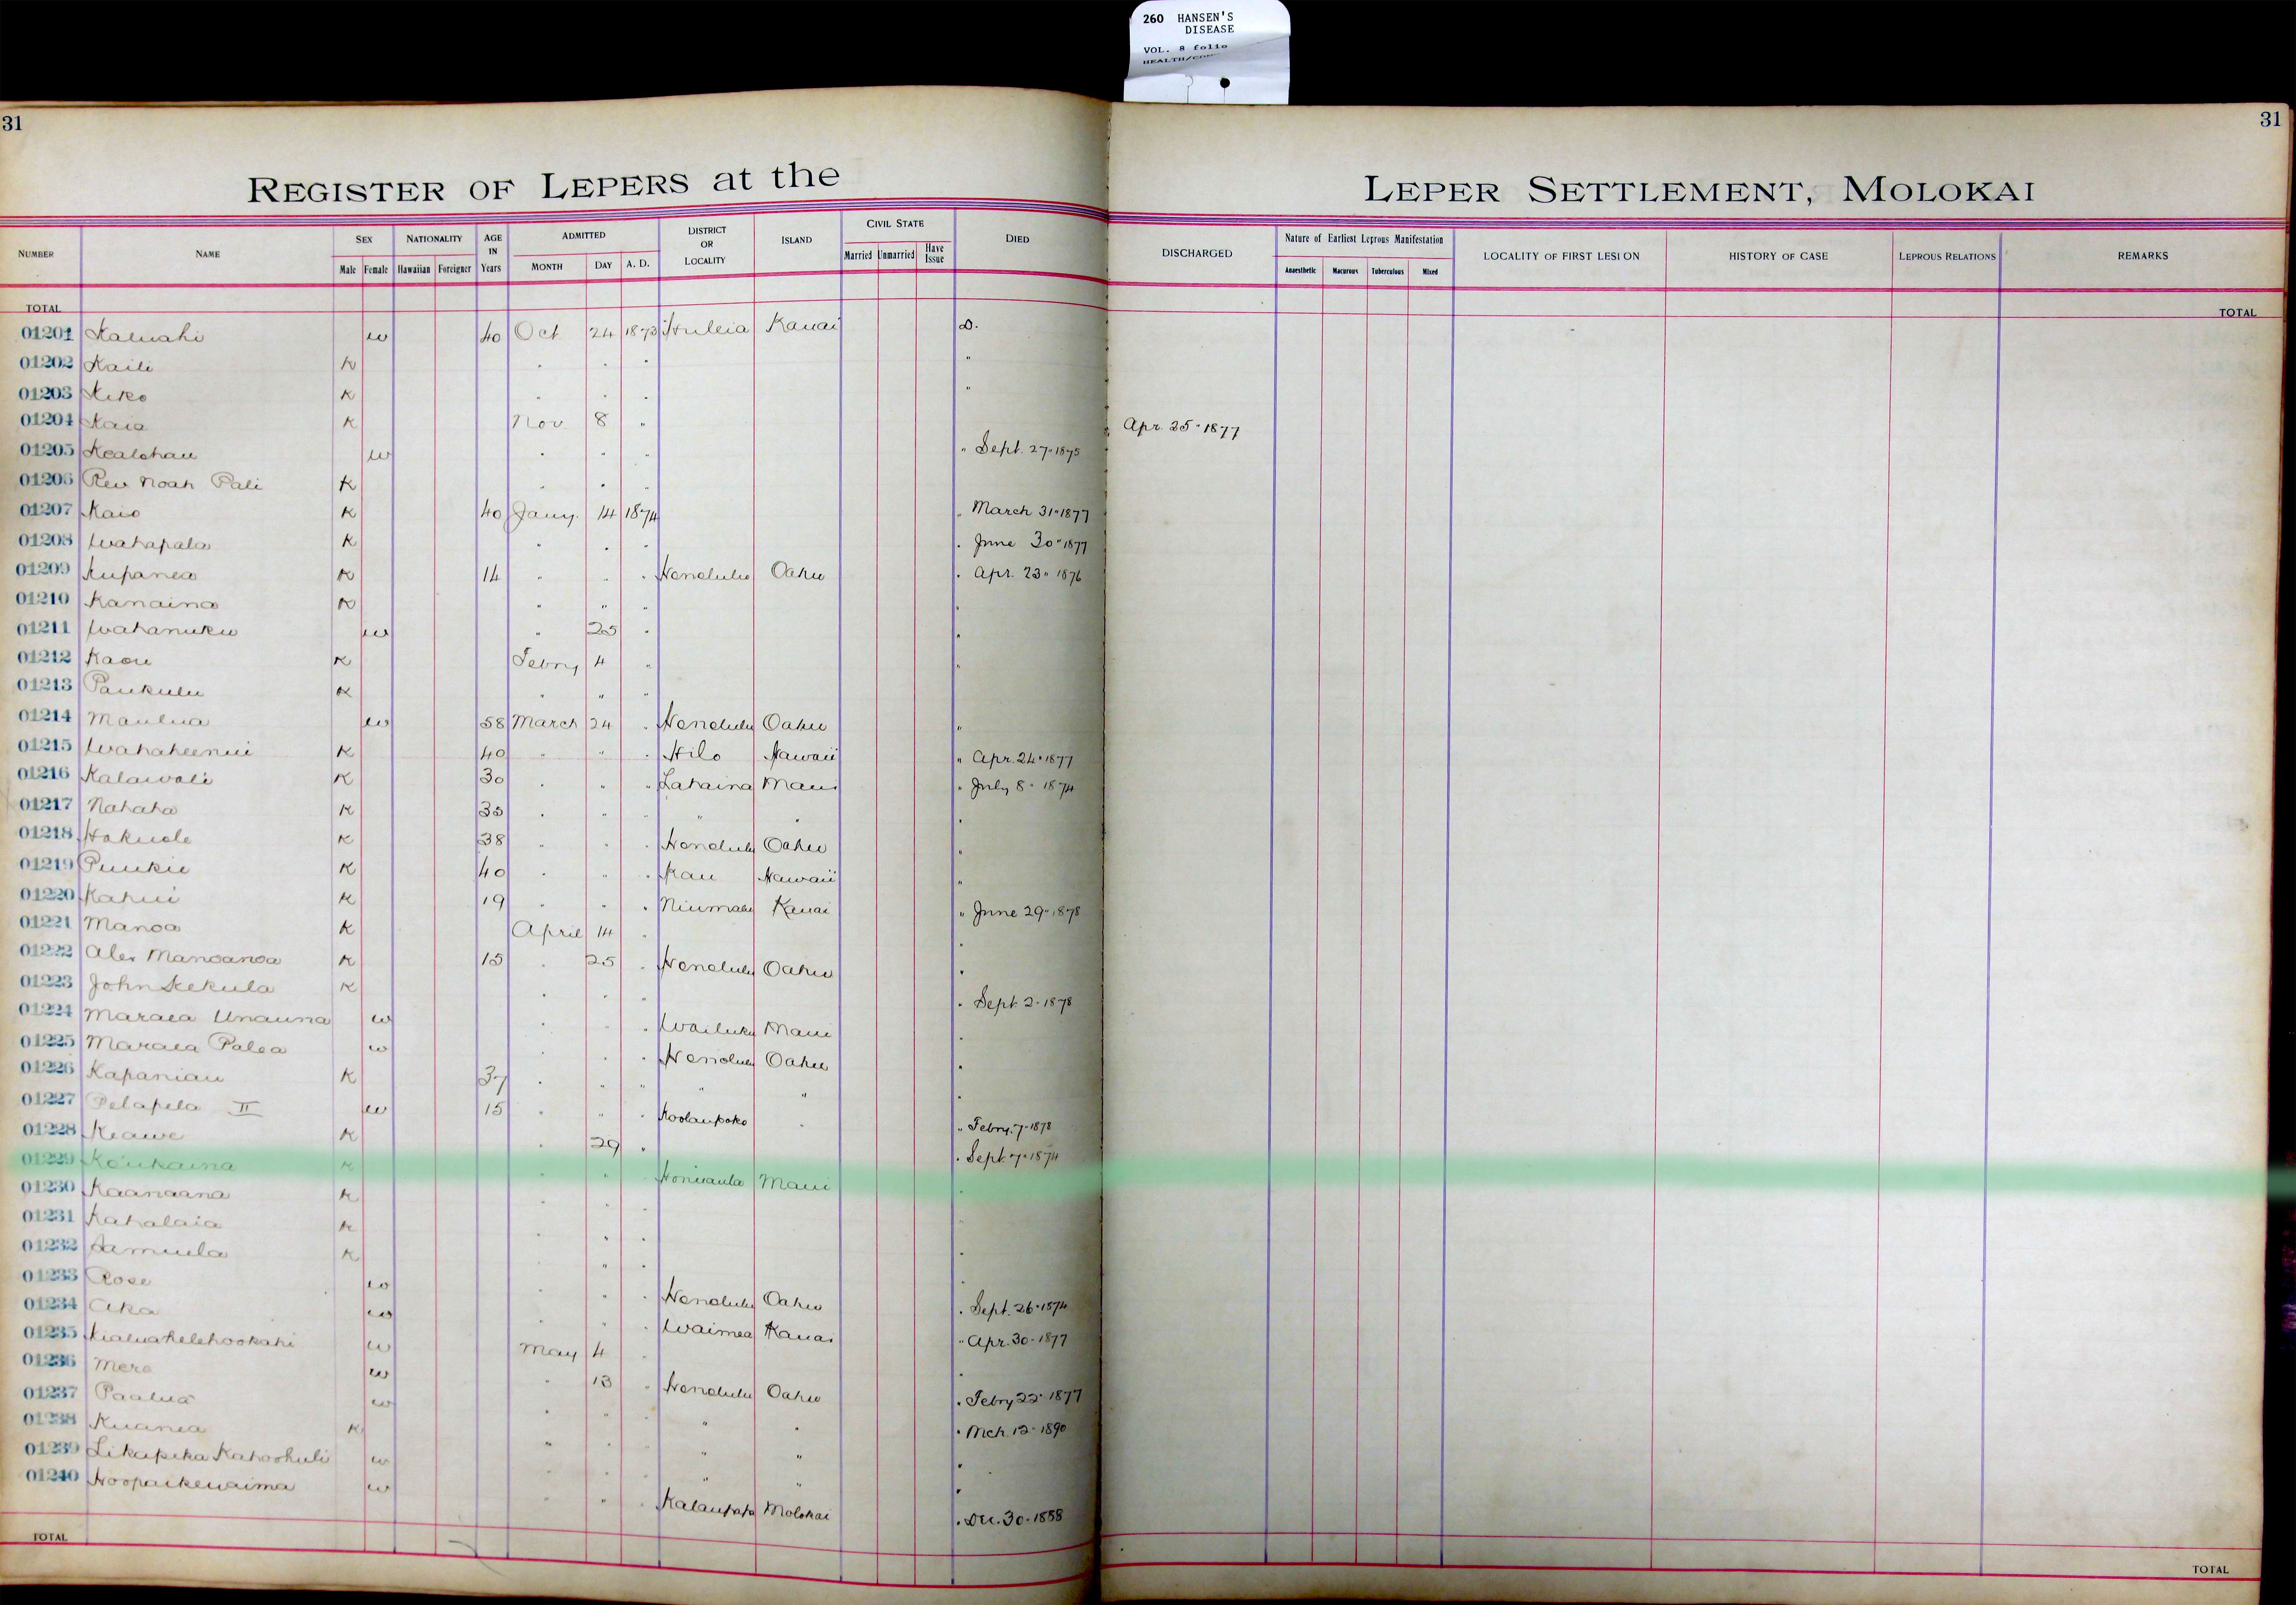 260 HANSEN'S
DISEASE
VOL. 8 folio
31 31
REGISTER OF LEPERS at the LEPER SETTLEMENT, MOLOKAI
NUMBER NAME SEX Male Female NATIONALITY Hawaiian Foreigner AGE IN Years ADMITTED MONTH DAY A. D. DISTRICT OR LOCALITY ISLAND CIVIL STATE Married Unmarried Have Issue DIED DISCHARGED Nature of Earliest Leprous Manifestation Anaesthetic Macurous Tuberculous Mixed LOCALITY OF FIRST LESION HISTORY OF CASE LEPROUS RELATIONS REMARKS
TOTAL TOTAL
01201 Kaluahi w 40 Oct 24 1873 Huleia Kauai D.
01202 Kaili K " " " "
01203 Kiko K " " " "
01204 Kaia K Nov. 8 " " Apr. 25" 1877
01205 Kealohau w " " " " Sept. 27" 1875
01206 Rev Noah Pali K " " "
01207 Kaio K 40 Jany. 14 1874 " March 31" 1877
01208 Wahapala K " " " " June 30" 1877
01209 Kupanea K 14 " " " Honolulu Oahu " Apr. 23" 1876
01210 Kanaina K " " " "
01211 Wahanuku w " 25 " "
01212 Kaou K Febry 4 " "
01213 Paukulu K " " "
01214 Maulua w 58 March 24 " Honolulu Oahu "
01215 Wahaheenui K 40 " " " Hilo Hawaii " Apr. 24" 1877
01216 Kalawali K 30 " " " Lahaina Maui " July 8" 1874
01217 Nahaha K 35 " " " " " "
01218 Hokuole K 38 " " " Honolulu Oahu "
01219 Puukii K 40 " " " Kau Hawaii "
01220 Kahui K 19 " " " Niumalu Kauai " June 29" 1878
01221 Manoa K April 14 " "
01222 Alex Manoanoa K 15 " 25 " Honolulu Oahu "
01223 John Kekula K " " " " Sept. 2" 1878
01224 Maraea Unauna w " " " Wailuku Maui "
01225 Maraea Palea w " " " Honolulu Oahu "
01226 Kapaniau K 37 " " " " " "
01227 Pelapela II w 15 " " " Koolaupoko " " Febry. 7" 1878
01228 Keawe K " 29 " " Sept. 7" 1874
01229 Keukaina K " " " Honuaula Maui "
01230 Kaanaana K " " " "
01231 Kahalaia K " " " "
01232 Kamuela K " " " "
01233 Rose w " " " Honolulu Oahu " Sept. 26" 1874
01234 Aka w " " " Waimea Kauai " Apr. 30" 1877
01235 w May 4 " "
01236 Mere w " 13 " Honolulu Oahu " Febry 22" 1877
01237 Paalua w " " " " " " Mch. 12" 1890
01238 Kuanea K " " " " " "
01239 Likapeka Kahoohuli w " " " " " "
01240 Hoopaikewaima w " " " Kalaupapa Molokai " Dec. 30" 1888
TOTAL TOTAL